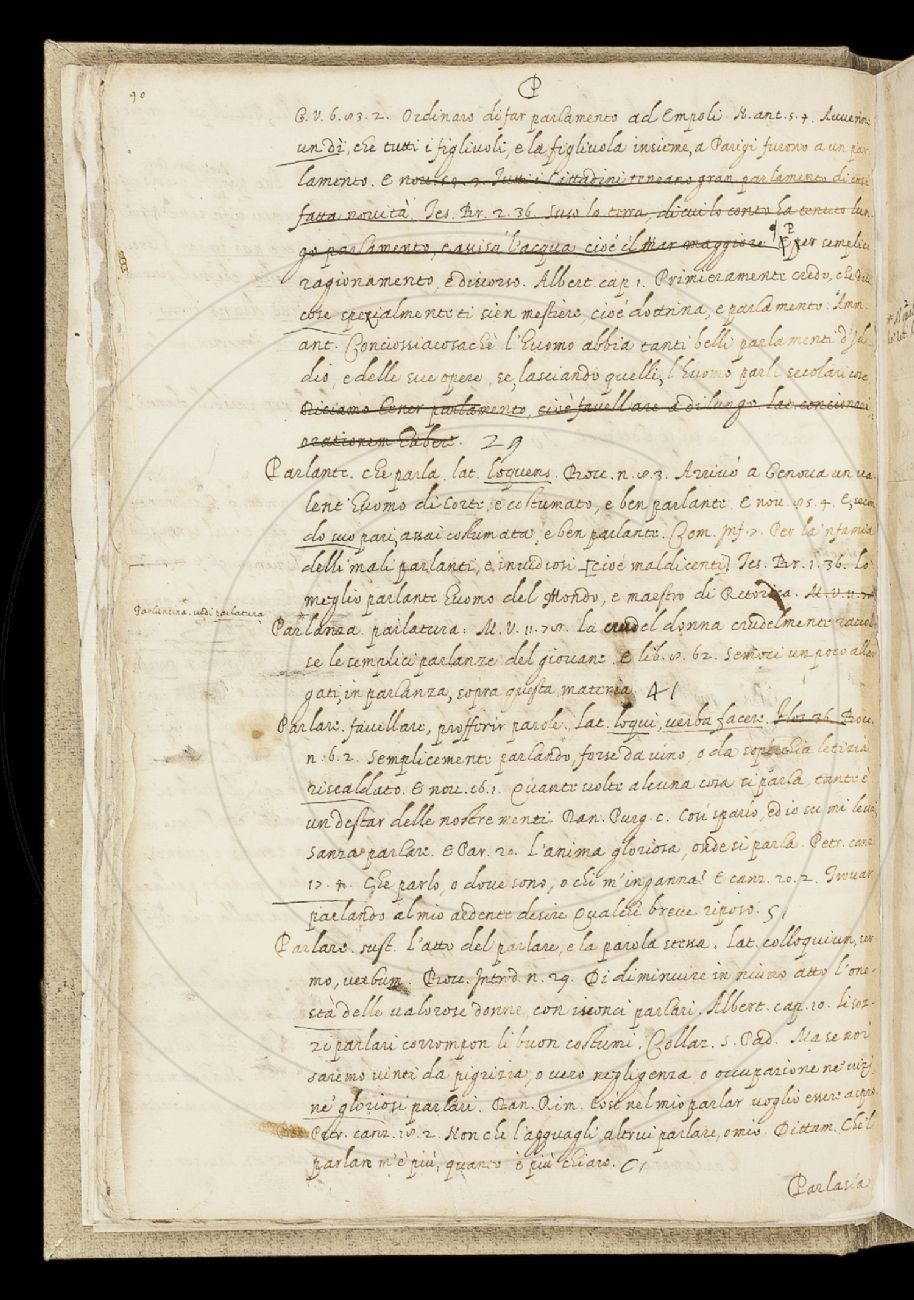 40
P
G. V. 6. 83. 2. Ordinaro di far parlamento ad Empoli. N. ant. 5. 4. Avvenne
un dì, che tutti i figlivoli, e la figlivola insieme, a Parigi furono a un par
lamento. E nov. Tutti i Cittadini teneano gran parlamento di cose
fatta novità. Tes. Br. 2. 36. Suso lo terra, di cui lo conto ha tenuto lun
go parlamento, e assisa l'acqua cioè il Mar maggiore. P per semplice
ragionamento, e discorso. Albert. cap. 1. Primieramente credo, che due
cose spezialmente ti sien mestiere, cioè dottrina, e parlamento. Amm.
ant. Conciossiacosachè l'huomo abbia tanti belli parlamenti d'Id
dio, e delle sue opere, se, lasciando quelli, l'huomo parli secolari cose
Diciamo tener parlamento, cioè favellare a di lungo lat. concionari,
orationem habere. 29
Parlante. che parla. lat. loquens. Bocc. n. 8. 3. Arrivò a Genova un va
lente huomo di Corte, e costumato, e ben parlante. E nov. 95. 4. E, secon
do suo pari, assai costumato, e ben parlante. Com. Inf. 7. Per la 'nfamia
delli mali parlanti, e invidiosi [cioè maldicenti] Tes. Br. 1. 36. Lo
meglio parlante huomo del Mondo, e maestro di Retorica. M. V. 11. 78
Parlantina. vedi parlatura
Parlanza parlatura. M. V. 11. 78. la crudel donna crudelmente raccol
se le semplici parlanze del giovane. E lib. 8. 62. Semoci un poco allar
gati, in parlanza, sopra questa materia. 41
Parlare. favellare, profferir parole. lat. loqui, verba facere. Flos. 36. Bocc.
n. 6. 2. Semplicemente parlando, forse da vino, o da soperchia letizia
riscaldato. E nov. 16. 1. Quante volte alcuna cosa si parla, tante è
un destar delle nostre menti. Dan. Purg. c. Così sparìo, ed io su mi levai,
Sanza parlare. E Par. 20. l'anima gloriosa, onde si parla. Petr. canz.
17. 4. Che parlo, o dove sono, o chi m'inganna? E canz. 20. 2. Trovar
parlando al mio ardente desire Qualche breve riposo. 51
Parlare. sust. l'atto del parlare, e la parola stessa. lat. colloquium, ser
mo, verbum. Bocc. Introd. n. 29. Di diminuire in niuno atto l'one-
stà delle valorose donne, con isconci parlari. Albert. cap. 10. li soz-
zi parlari corrompon li buon costumi. Collaz. S. Pad. Ma se noi
saremo vinti da pigrizia, o vero negligenza o occupazione ne' vizj
ne' gloriosi parlari. Dan. Rim. Così nel mio parlar voglio essere aspro.
Petr. canz. 18. 2. Non che l'agguagli altrui parlare, o mio. Dittam. Che 'l
parlare m'è più, quanto è più chiaro. C1
Parlasìa